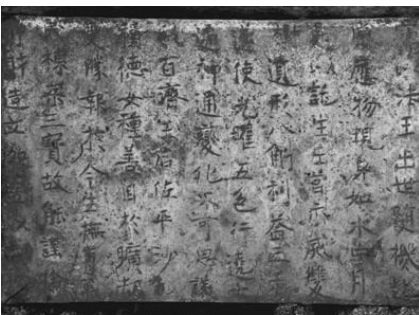 以法王出世隨機赴
應物現身如水中月
以託生王宮示滅雙
樹遺形八斛利益三千
遂使光曜五色行遶七
遍神通變化不可思議
百濟王后佐平沙乇
積德女種善因於曠劫
受勝報於今生撫育
棟梁三寶故能謹捨
財造立伽藍以